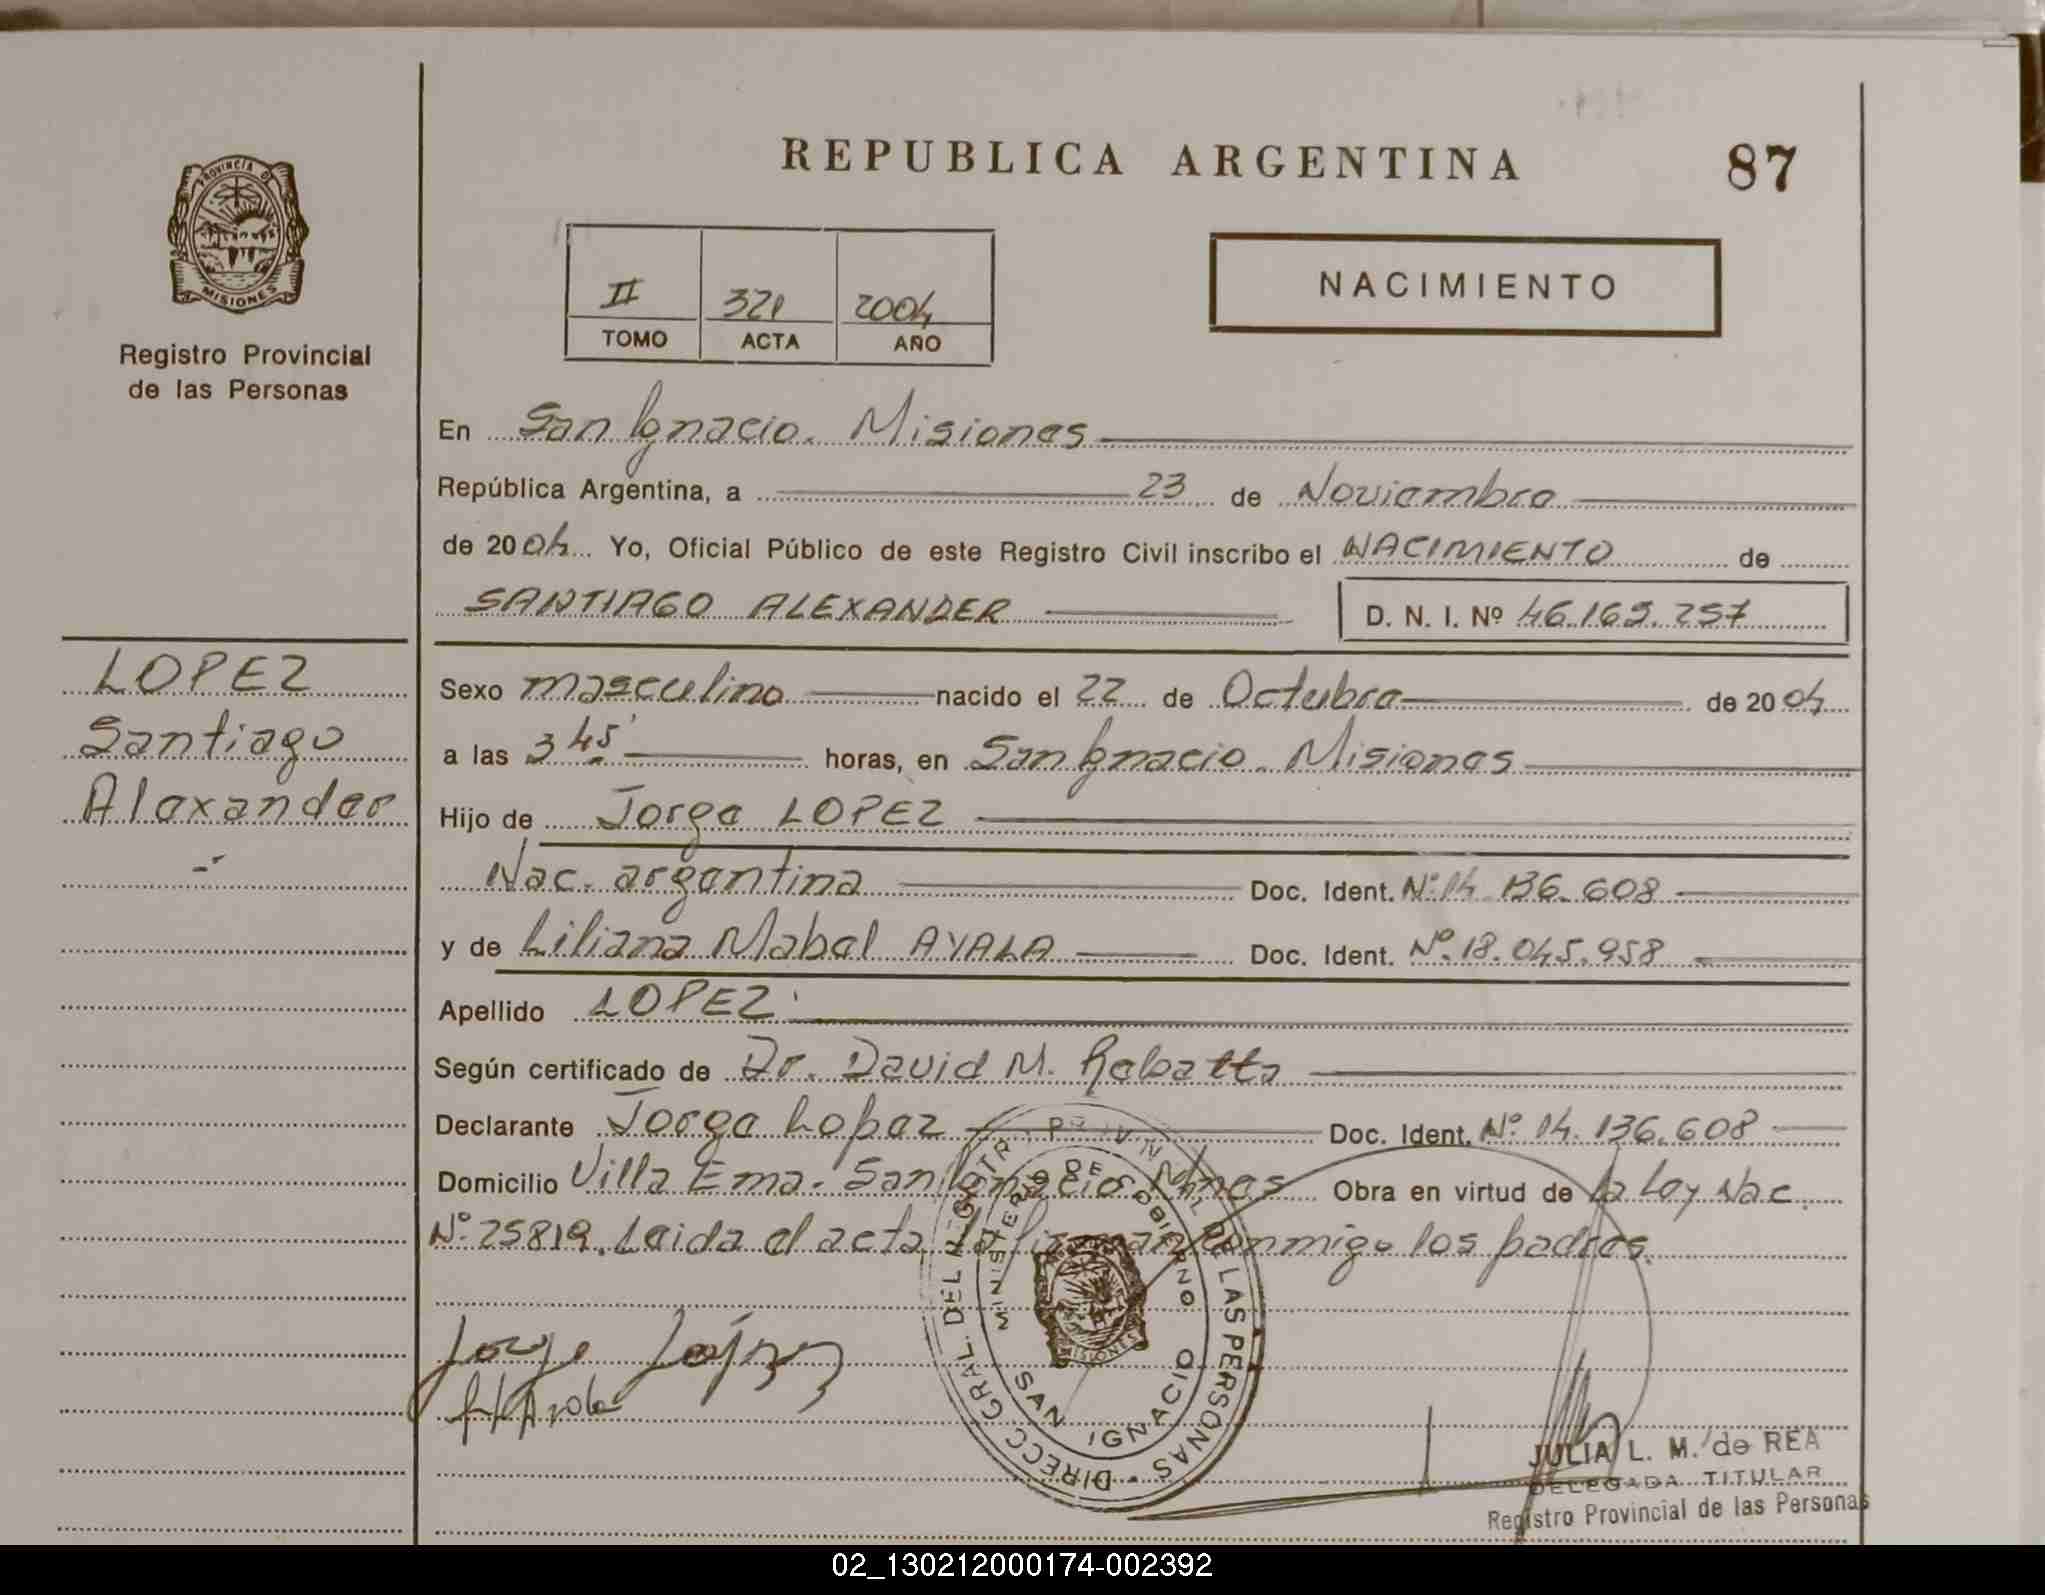 REPUBLICA ARGENTINA
87
PROVINCIA DE
MISIONES
Registro Provincial
de las Personas
II 321 2004
TOMO ACTA AÑO
NACIMIENTO
En San Ignacio. Misiones
República Argentina, a 23 de Noviembre
de 2004 Yo, Oficial Público de este Registro Civil inscribo el NACIMIENTO de
SANTIAGO ALEXANDER D. N. I. Nº 46.169.257
LOPEZ
Santiago
Alexander
Sexo masculino nacido el 22 de Octubre de 2004
a las 3 45' horas, en San Ignacio. Misiones
Hijo de Jorge LOPEZ
Nac. argentina Doc. Ident. Nº 14.136.608
y de Liliana Mabel AYALA Doc. Ident. Nº 18.045.958
Apellido LOPEZ
Según certificado de Dr. David M. Rebatta
Declarante Jorge Lopez Doc. Ident. Nº 14.136.608
Domicilio Villa Ema. San Ignacio. Mnes Obra en virtud de la Ley Nac.
Nº 25819. Leida el acta la firman conmigo los padres.
Jorge López
DIRECC GRAL. DEL REGISTR. PROVINCIAL DE LAS PERSONAS
MINISTERIO DE GOBIERNO
MISIONES
SAN IGNACIO
JULIA L. M. de REA
DELEGADA TITULAR
Registro Provincial de las Personas
02_130212000174-002392